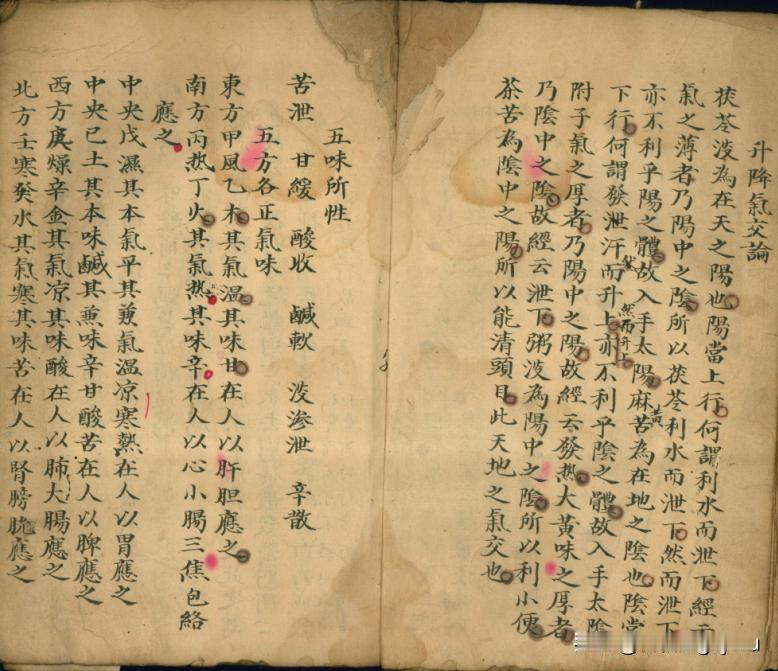 升降氣交論
茯苓淡為在天之陽也陽當上行何謂利水而泄下經云
氣之薄者乃陽中之陰所以茯苓利水而泄下然而泄下
亦不利乎陽之體故入手太陽麻黃苦為在地之陰也陰當
下行何謂發泄汗而升上然而升上亦不利乎陰之體故入手太陰
附子氣之厚者乃陽中之陽故經云發熱大黃味之厚者
乃陰中之陰故經云泄下粥淡為陽中之陰所以利小便
茶苦為陰中之陽所以能清頭目此天地之氣交也
五味所性
苦泄 甘緩 酸收 鹹軟 淡渗泄 辛散
五方各正氣味
東方甲風乙木其氣温其味甘在人以肝胆應之
南方丙热丁火其氣熱其味辛在人以心小腸三焦包絡
應之
中央戊濕其本氣平其兼氣温凉寒熱在人以胃應之
中央已土其本味鹹其兼味辛甘酸苦在人以脾應之
西方庚燥辛金其氣凉其味酸在人以肺大腸應之
北方壬寒癸水其氣寒其味苦在人以腎膀胱應之